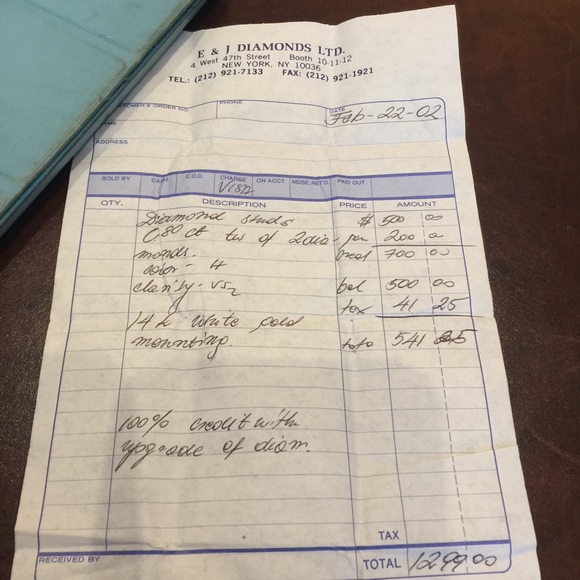 E & J DIAMONDS LTD.
4 West 47th Street Booth 10-11-12
NEW YORK, NY 10036
TEL.: (212) 921-7133 FAX: (212) 921-1921
CUSTOMER'S ORDER NO. PHONE DATE Feb-22-02
NAME
ADDRESS
SOLD BY CASH C.O.D. CHARGE ON ACCT. MDSE. RET'D. PAID OUT
Visa
QTY. DESCRIPTION PRICE AMOUNT
Diamond studs $ 500 00
0.80 ct tw of 2 dia- 200
monds. 700 00
color - H
clarity - VS2 bal 500 00
tax 41 25
14k white gold
mounting. 541 25
100% credit with
upgrade of diam.
TAX
RECEIVED BY TOTAL 1299 00